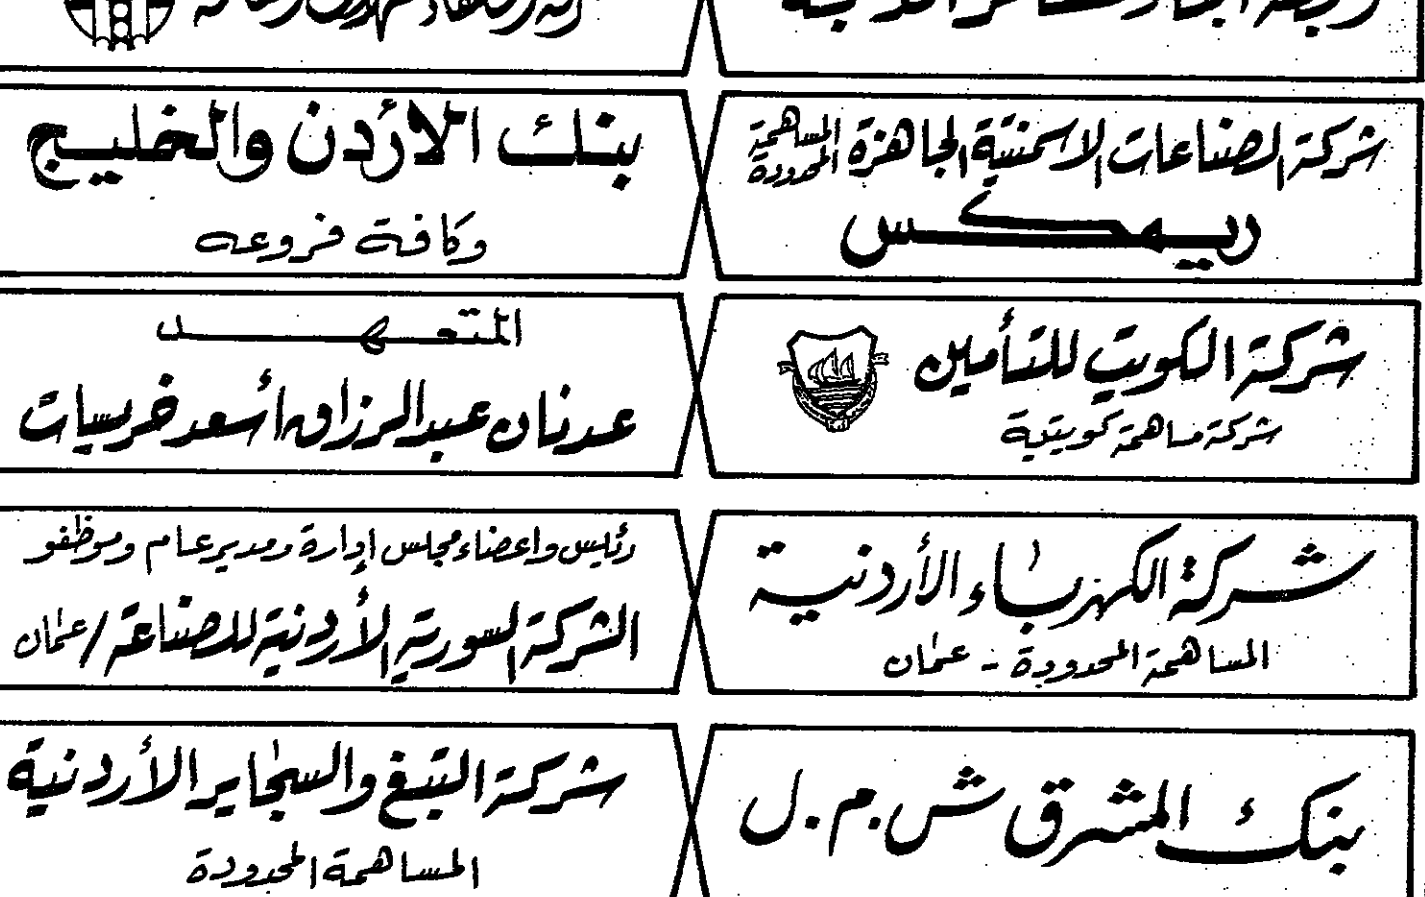 شركة الصناعات الاسمنتية الجاهزة المساهمة المحدودة
ريمكس
بنك الأردن والخليج
وكافة فروعه
شركة الكويت للتأمين
شركة مساهمة كويتية
المتعهد
عدنان عبد الرزاق أسعد خريسات
شركة الكهرباء الأردنية
المساهمة المحدودة - عمان
رئيس واعضاء مجلس إدارة ومدير عام وموظفو
الشركة السورية الأردنية للصناعة / عمان
بنك المشرق ش.م.ل
شركة التبغ والسجاير الأردنية
المساهمة المحدودة